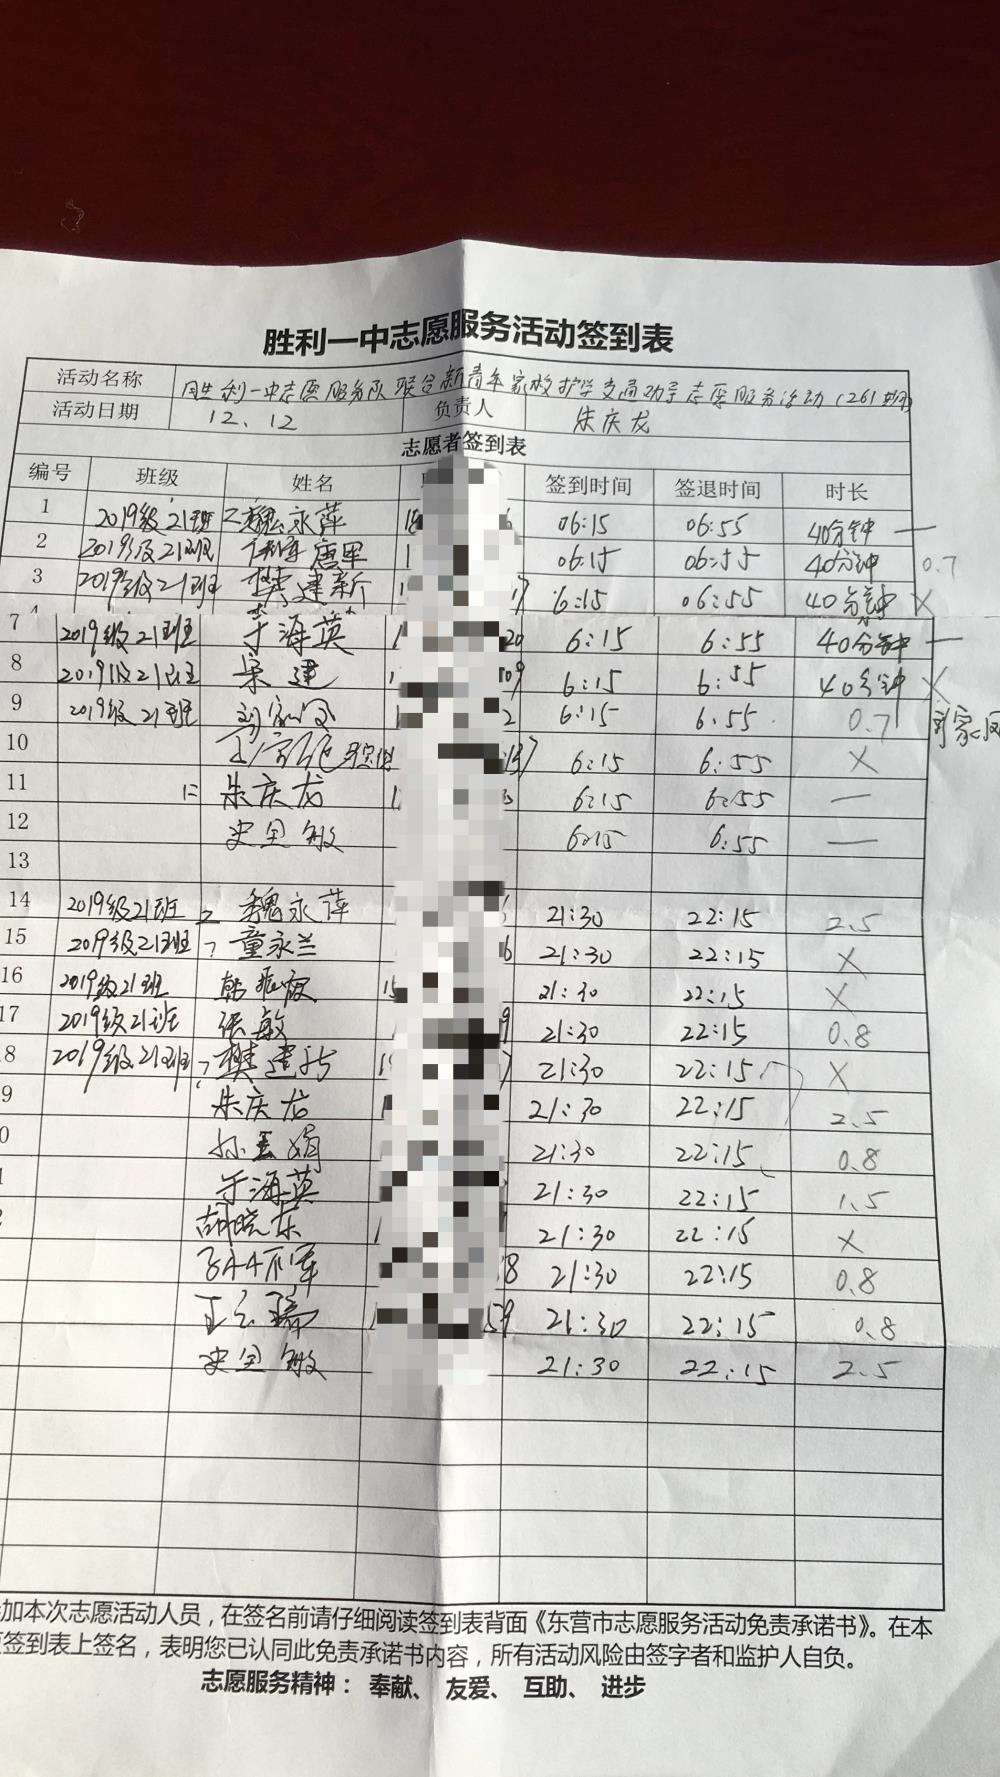 胜利一中志愿服务活动签到表
活动名称 胜利一中志愿服务队联合新青年家校护学交通劝导志愿服务活动(261期)
活动日期 12、12 负责人 朱庆龙
志愿者签到表
编号 班级 姓名 签到时间 签退时间 时长
1 2019级21班 魏永萍 06:15 06:55 40分钟 —
2 2019级21班 唐军 06:15 06:55 40分钟 0.7
3 2019级21班 樊建新 6:15 06:55 40分钟 X
7 2019级21班 于海英 20 6:15 6:55 40分钟 —
8 2019级21班 梁建 09 6:15 6:55 40分钟 X
9 2019级21班 2 6:15 6:55 0.7
10 6:15 6:55 X
11 朱庆龙 6:15 6:55 —
12 史全敏 6:15 6:55 —
13
14 2019级21班 魏永萍 21:30 22:15 2.5
15 2019级21班 童永兰 6 21:30 22:15 X
16 2019级21班 15 21:30 22:15 X
17 2019级21班 张敏 9 21:30 22:15 0.8
8 2019级21班 樊建新 7 21:30 22:15 X
9 朱庆龙 21:30 22:15 2.5
0 孙玉娟 21:30 22:15 0.8
于海英 21:30 22:15 1.5
胡晓东 21:30 22:15 X
8 21:30 22:15 0.8
59 21:30 22:15 0.8
史全敏 21:30 22:15 2.5
加本次志愿活动人员，在签名前请仔细阅读签到表背面《东营市志愿服务活动免责承诺书》。在本
签到表上签名，表明您已认同此免责承诺书内容，所有活动风险由签字者和监护人自负。
志愿服务精神： 奉献、 友爱、 互助、 进步